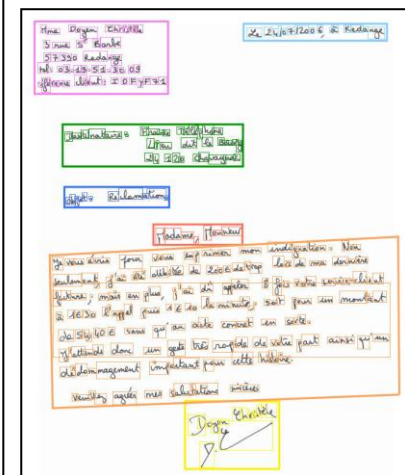 Mme Doyen Christèle
3 rue Ste Barbe
57390 Redange
tel: 03.13.51.30.09
référence client: IOFYF71
Le 24/07/2006, à Redange
Destinataire:
Objet: Réclamation
Madame, Monsieur
Je vous écris pour vous exprimer mon indignation. Non
seulement j'ai été débitée de 200€ de trop lors de ma dernière
facture, mais en plus, j'ai dû appeler 8 fois votre service client
à 1€30 l'appel puis 1€ la minute, soit pour un montant
de 54,40€ sans qu'un acte concret en sorte.
J'attends donc un geste très rapide de votre part ainsi qu'un
dédommagement important pour cette histoire.
Veuillez agréer mes salutations sincères
Doyen Christèle